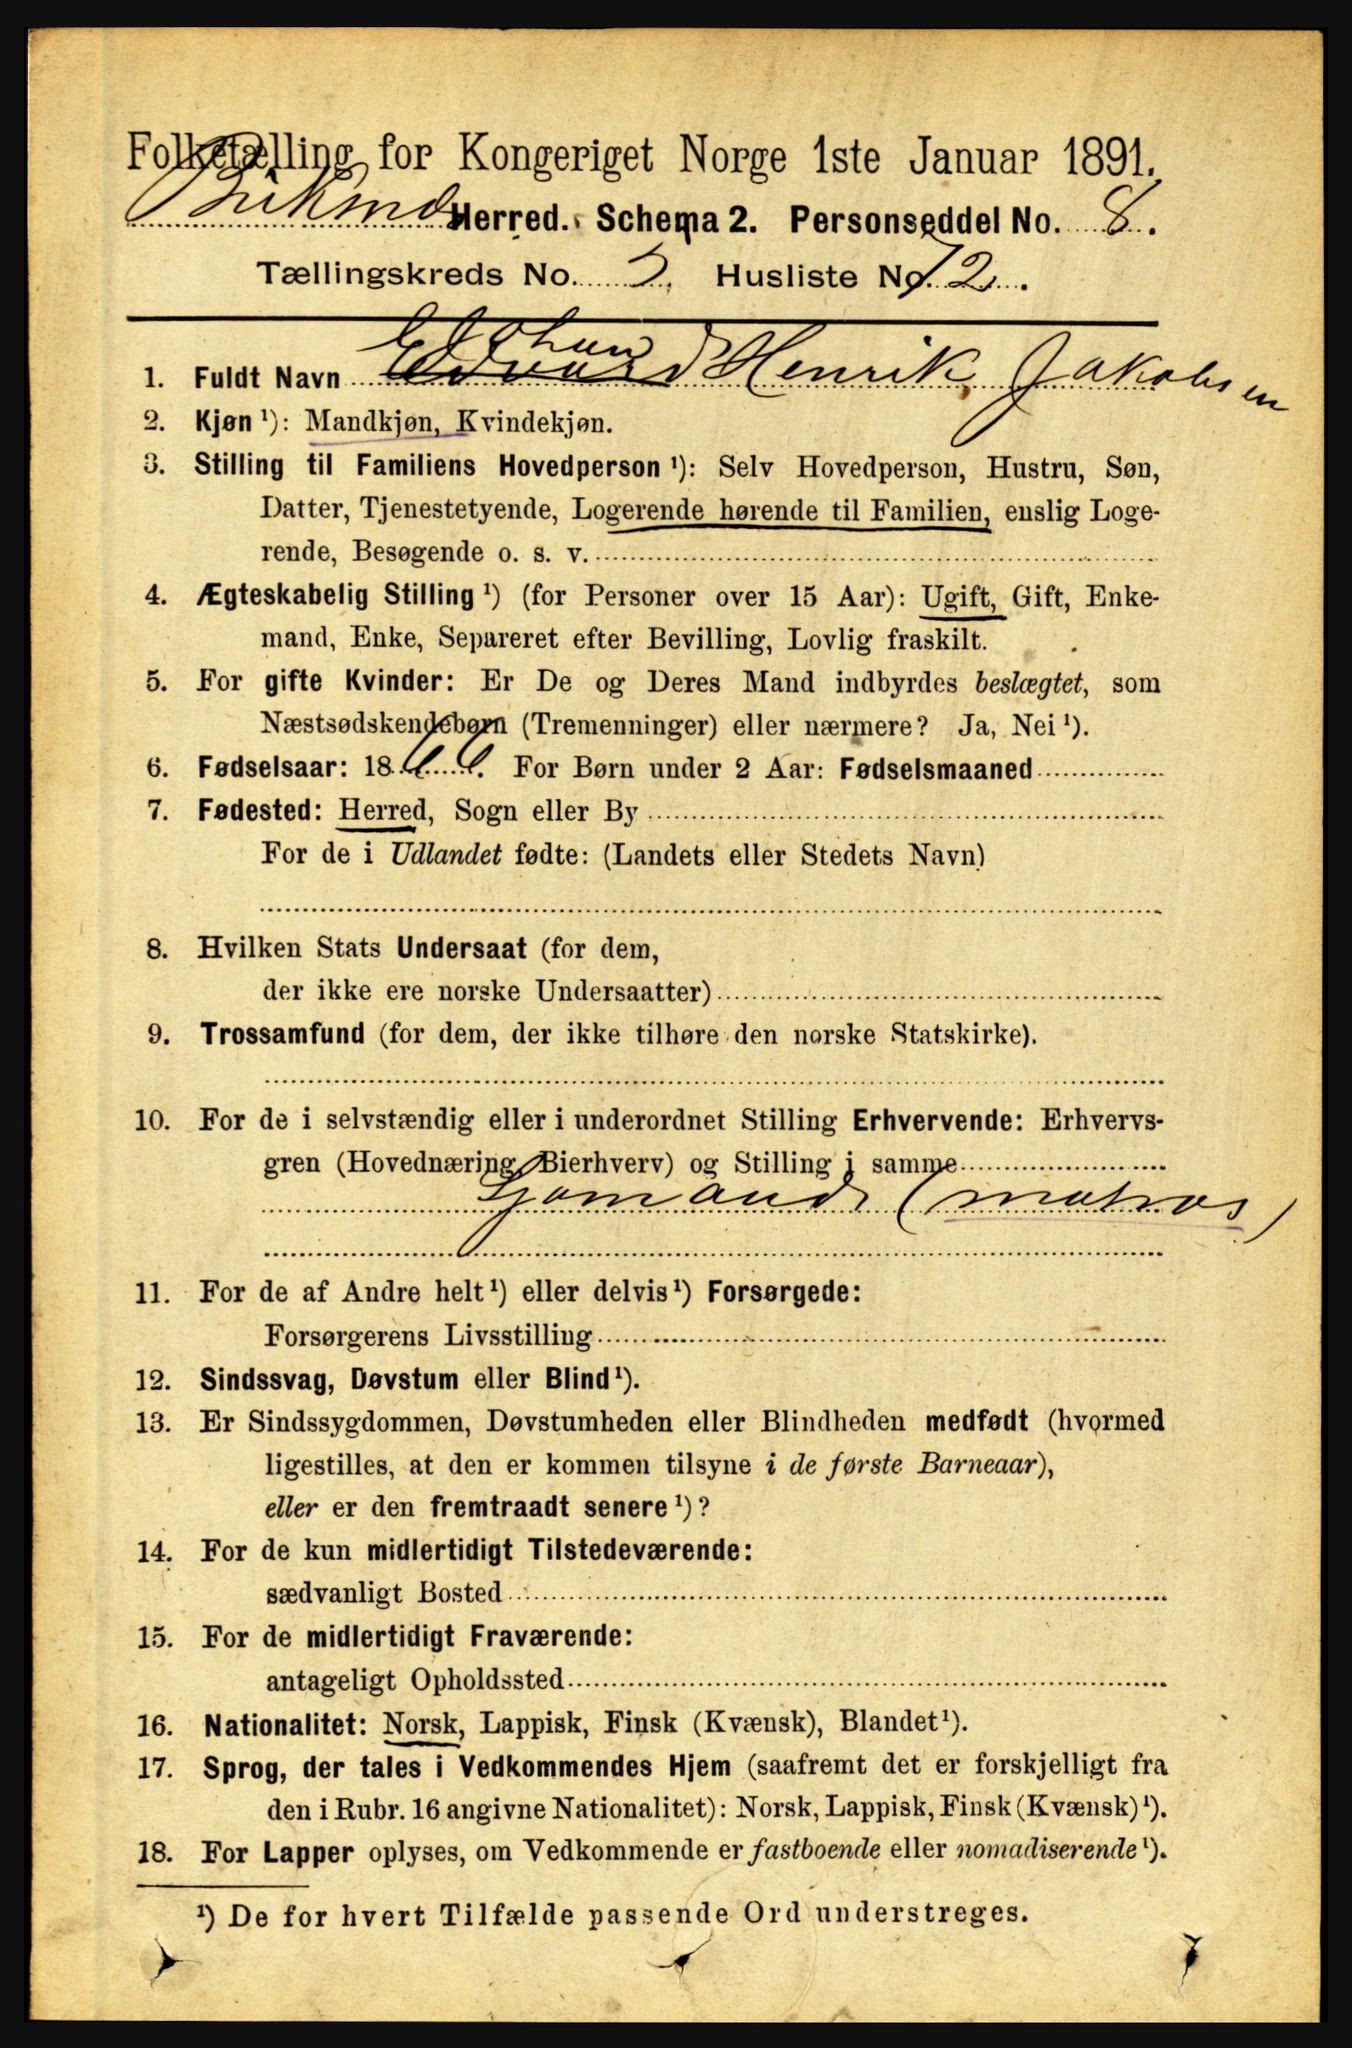 Folketælling for Kongeriget Norge 1ste Januar 1891.
Buksnes Herred. Schema 2. Personseddel No. 8.
Tællingskreds No. 5. Husliste No. 72.
1. Fuldt Navn Edvard Henrik Jakobsen
2. Kjøn ¹): Mandkjøn, Kvindekjøn.
3. Stilling til Familiens Hovedperson ¹): Selv Hovedperson, Hustru, Søn,
Datter, Tjenestetyende, Logerende hørende til Familien, enslig Loge-
rende, Besøgende o. s. v.
4. Ægteskabelig Stilling ¹) (for Personer over 15 Aar): Ugift, Gift, Enke-
mand, Enke, Separeret efter Bevilling, Lovlig fraskilt.
5. For gifte Kvinder: Er De og Deres Mand indbyrdes beslægtet, som
Næstsødskendebørn (Tremenninger) eller nærmere? Ja, Nei ¹).
6. Fødselsaar: 1866. For Børn under 2 Aar: Fødselsmaaned
7. Fødested: Herred, Sogn eller By
For de i Udlandet fødte: (Landets eller Stedets Navn)
8. Hvilken Stats Undersaat (for dem,
der ikke ere norske Undersaatter)
9. Trossamfund (for dem, der ikke tilhøre den norske Statskirke).
10. For de i selvstændig eller i underordnet Stilling Erhvervende: Erhvervs-
gren (Hovednæring, Bierhverv) og Stilling i samme
Sjømand (matros)
11. For de af Andre helt ¹) eller delvis ¹) Forsørgede:
Forsørgerens Livsstilling
12. Sindssvag, Døvstum eller Blind ¹).
13. Er Sindssygdommen, Døvstumheden eller Blindheden medfødt (hvormed
ligestilles, at den er kommen tilsyne i de første Barneaar),
eller er den fremtraadt senere ¹)?
14. For de kun midlertidigt Tilstedeværende:
sædvanligt Bosted
15. For de midlertidigt Fraværende:
antageligt Opholdssted
16. Nationalitet: Norsk, Lappisk, Finsk (Kvænsk), Blandet ¹).
17. Sprog, der tales i Vedkommendes Hjem (saafremt det er forskjelligt fra
den i Rubr. 16 angivne Nationalitet): Norsk, Lappisk, Finsk (Kvænsk) ¹).
18. For Lapper oplyses, om Vedkommende er fastboende eller nomadiserende ¹).
¹) De for hvert Tilfælde passende Ord understreges.